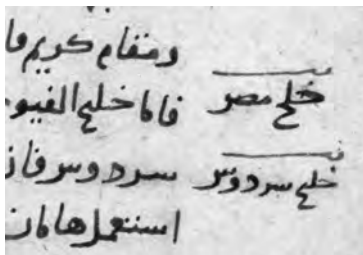 ومقام كريم فا
خليج مصر
فاما خليج الفيو
خليج سردوس
سردوس فان
استعمل هامان